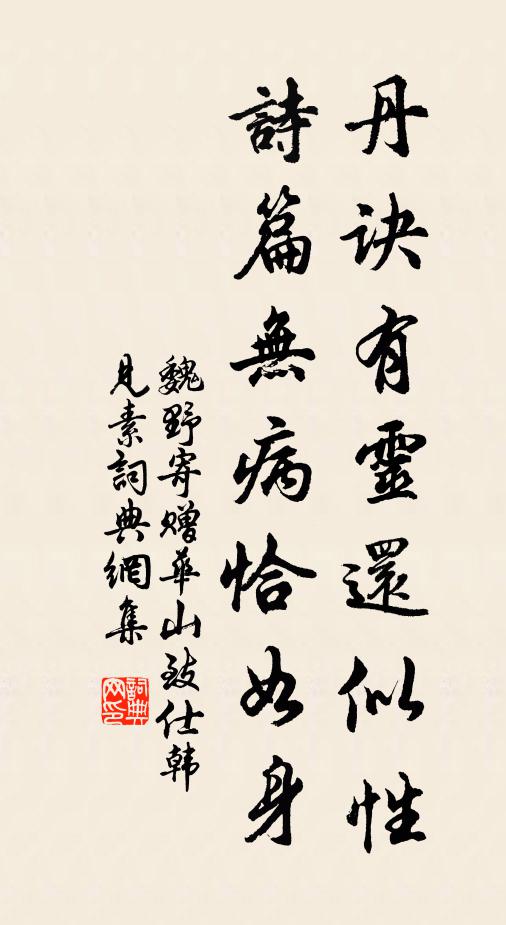 丹诀有靈還似性
詩篇無病恰如身
魏野寄赠華山致仕韩
見素詞典網集
詞典
网印